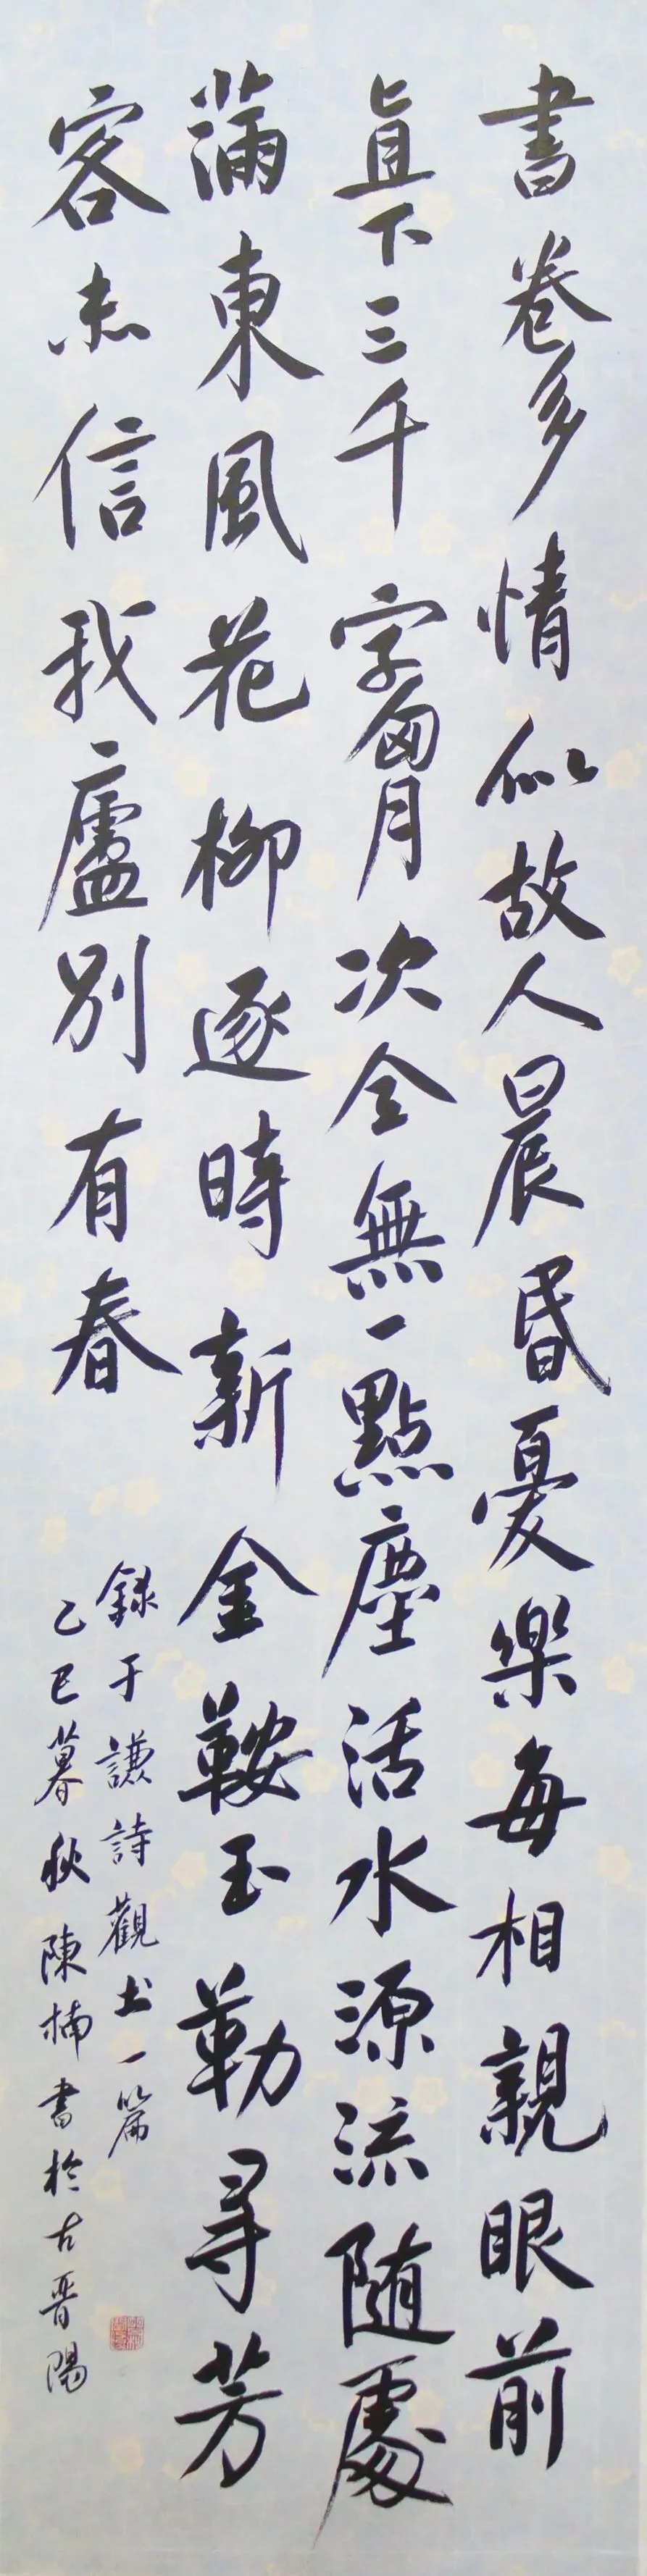 書卷多情似故人晨昏憂樂每相親眼前
直下三千字胷次全無一點塵活水源流隨處
滿東風花柳逐時新金鞍玉勒尋芳
客未信我廬別有春
録于謙詩觀书一篇
乙巳暮秋陳楠書於古晋陽